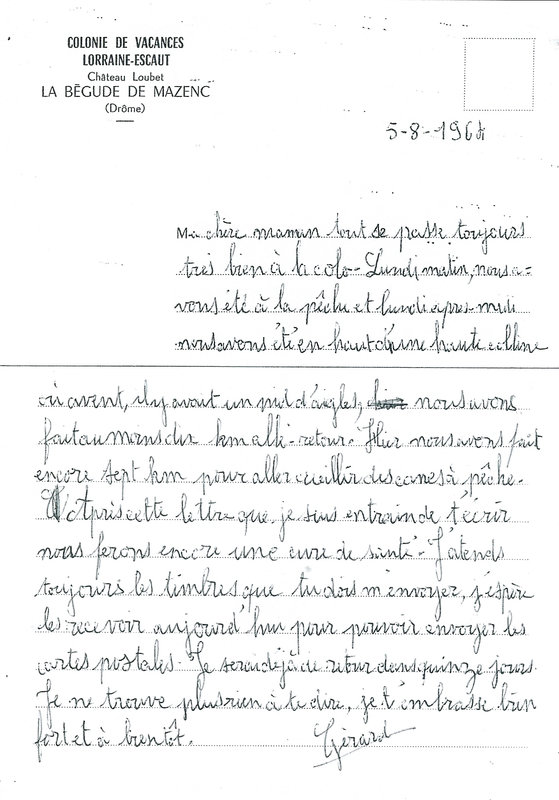 COLONIE DE VACANCES
LORRAINE-ESCAUT
Château Loubet
LA BÉGUDE DE MAZENC
(Drôme)
5-8-1964
Ma chère maman tout se passe toujours
très bien à la colo- Lundi matin, nous a-
vons été à la pêche et lundi après-midi
nous avons été en haut d'une haute colline
où avent, il y avait un nid d'aigles, nous avons
fait au moins dix km allé-retour. Hier nous avons fait
encore sept km pour aller cueillir des canes à pêche.
Après cette lettre que je suis entrain de t'écrir
nous ferons encore une cure de santé- J'atends
toujours les timbres que tu dois m'envoyer, j'espère
les recevoir aujourd'hui pour pouvoir envoyer les
cartes postales. Je serai déjà de retour dans quinze jours.
Je ne trouve plus rien à te dire, je t'embrasse bien
fort et à bientôt.
Gérard